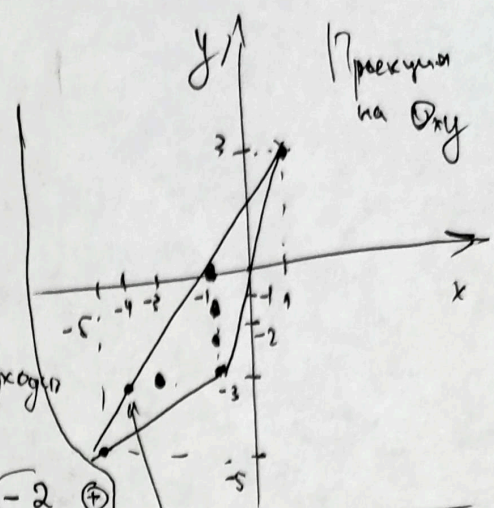 y
Проекция
на Oxy
3
-5
-4
-3
-1
-1
1
x
-2
-3
-5
ходп
- 2 +